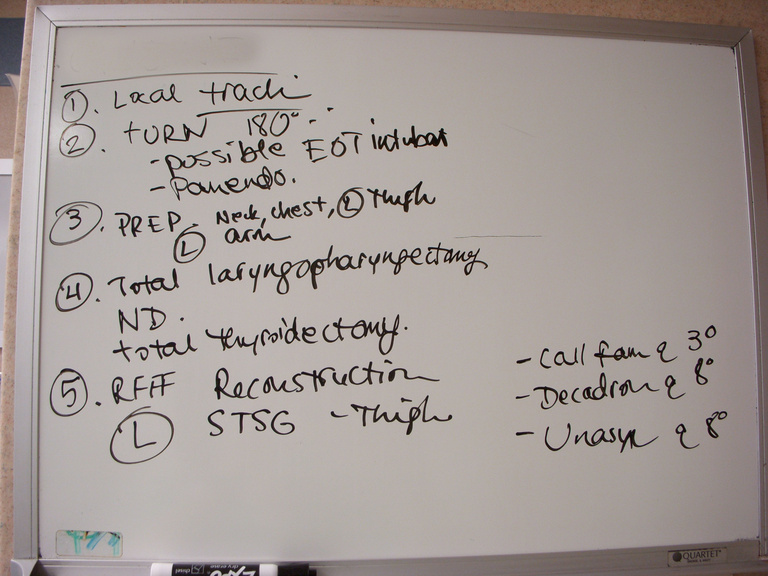 ① . Local trach
② . TURN 180° . .
- possible EOT intubat
- Panendo.
③ . PREP. Neck, chest, Ⓛ Thigh
Ⓛ arm
④ . Total laryngopharyngectomy
ND.
total thyroidectomy.
⑤ . RFFF Reconstruction
Ⓛ STSG - Thigh
- Call fam q 3°
- Decadron q 8°
- Unasyn q 8°
QUARTET